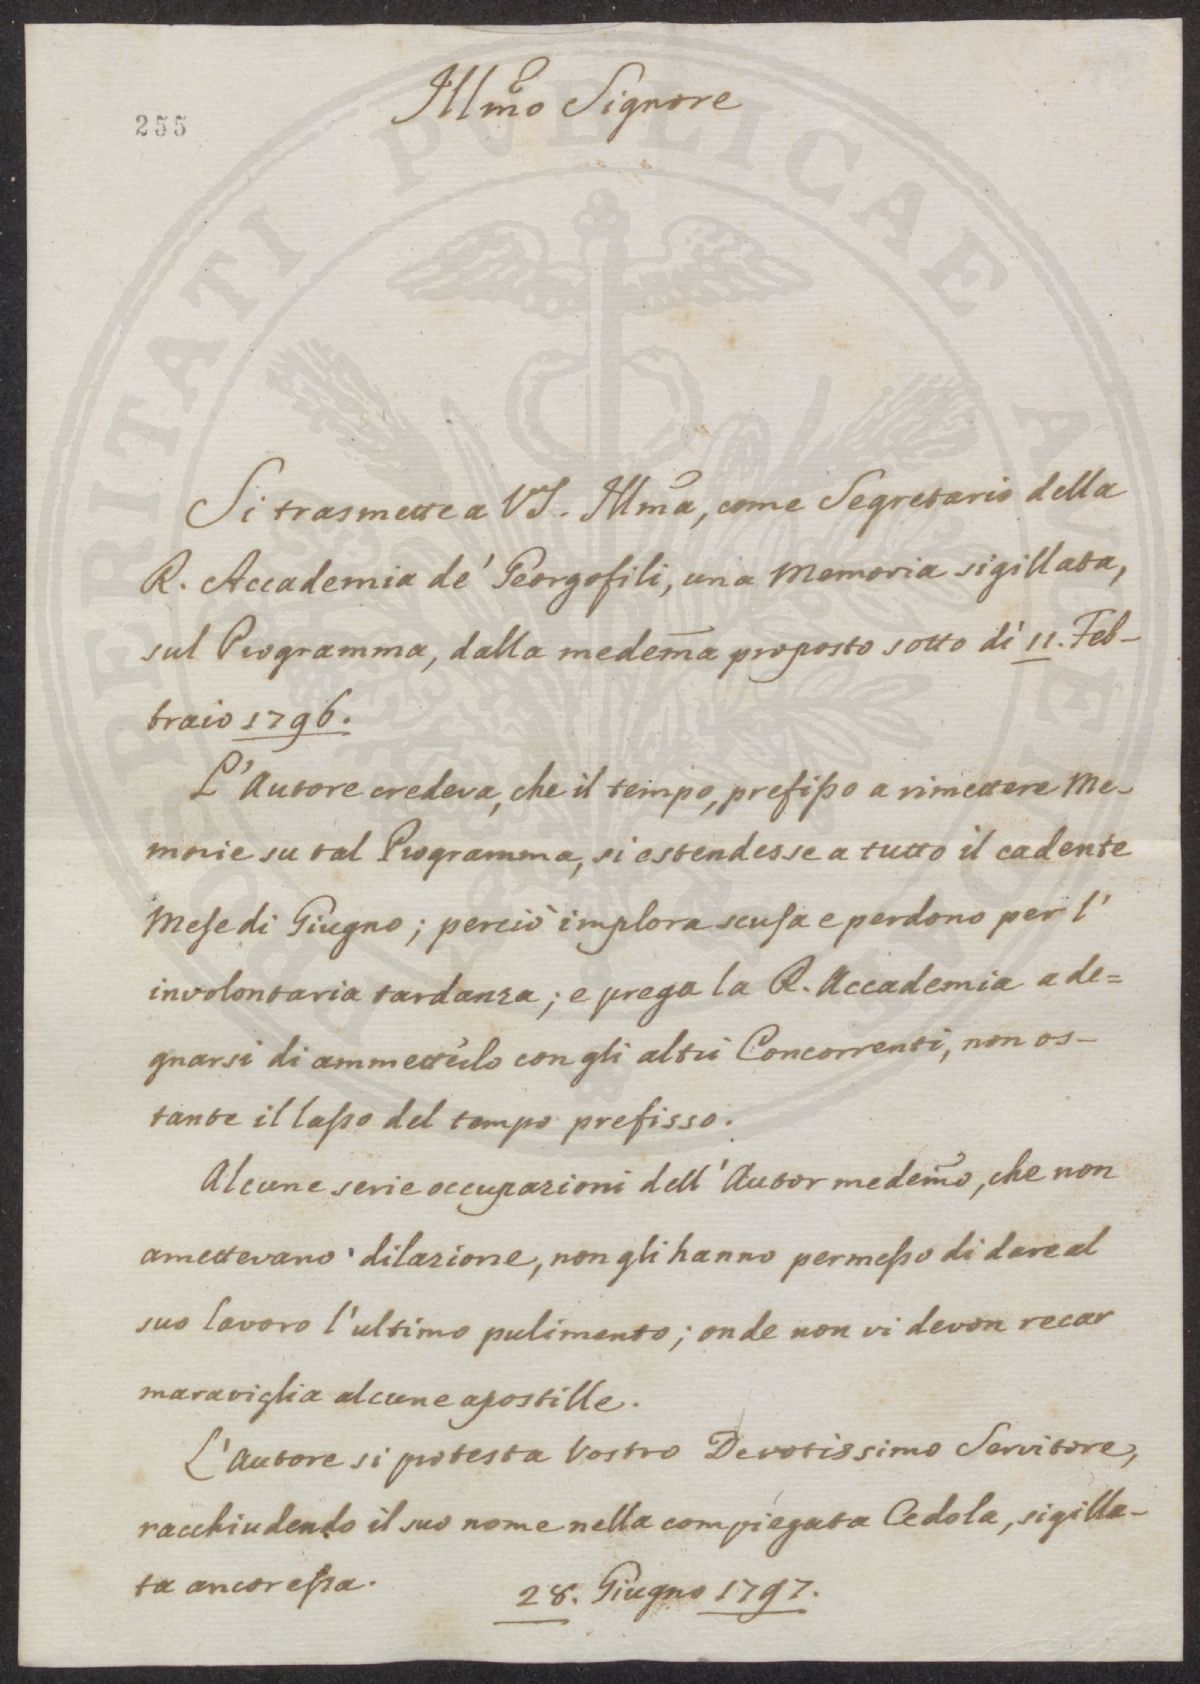 255
Illmo Signore
Si trasmette a VS. Illma, come Segretario della
R. Accademia de' Georgofili, una Memoria sigillata,
sul Programma, dalla medema proposto sotto dì 11. Feb-
braio 1796.
L'Autore credeva, che il tempo, prefisso a rimettere Me-
morie su tal Programma, si estendesse a tutto il cadente
Mese di Giugno; perciò implora scusa e perdono per l'
involontaria tardanza; e prega la R. Accademia a de=
gnarsi di ammetterlo con gli altri Concorrenti, non os-
tante il lasso del tempo prefisso.
Alcune serie occupazioni dell'Autor medemo, che non
amettevano dilazione, non gli hanno permesso di dare al
suo lavoro l'ultimo pulimento; onde non vi devon recar
maraviglia alcune apostille.
L'Autore si protesta Vostro Devotissimo Servitore,
racchiudendo il suo nome nella compiegata Cedola, sigilla-
ta ancor essa.
28. Giugno 1797.
PROSPERITATI PUBLICAE AUGENDAE